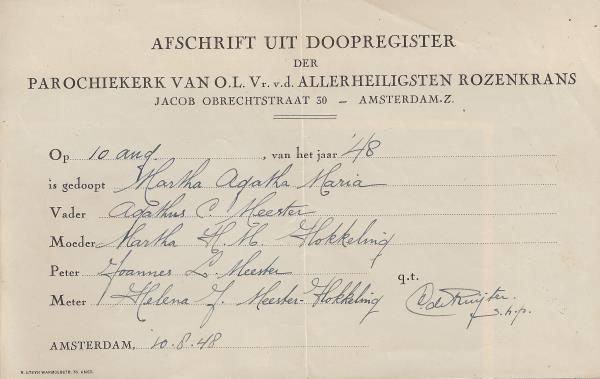 AFSCHRIFT UIT DOOPREGISTER
DER
PAROCHIEKERK VAN O.L. Vr. v.d. ALLERHEILIGSTEN ROZENKRANS
JACOB OBRECHTSTRAAT 30 — AMSTERDAM-Z.
Op 10 aug. , van het jaar '48
is gedoopt Martha Agatha Maria
Vader Agathus C. Meester
Moeder Martha H. M. Hokkeling
Peter Joannes L. Meester
q.t.
Meter Helena J. Meester-Hokkeling
C. de Ruijter.
s.h.p.
AMSTERDAM, 10.8.48